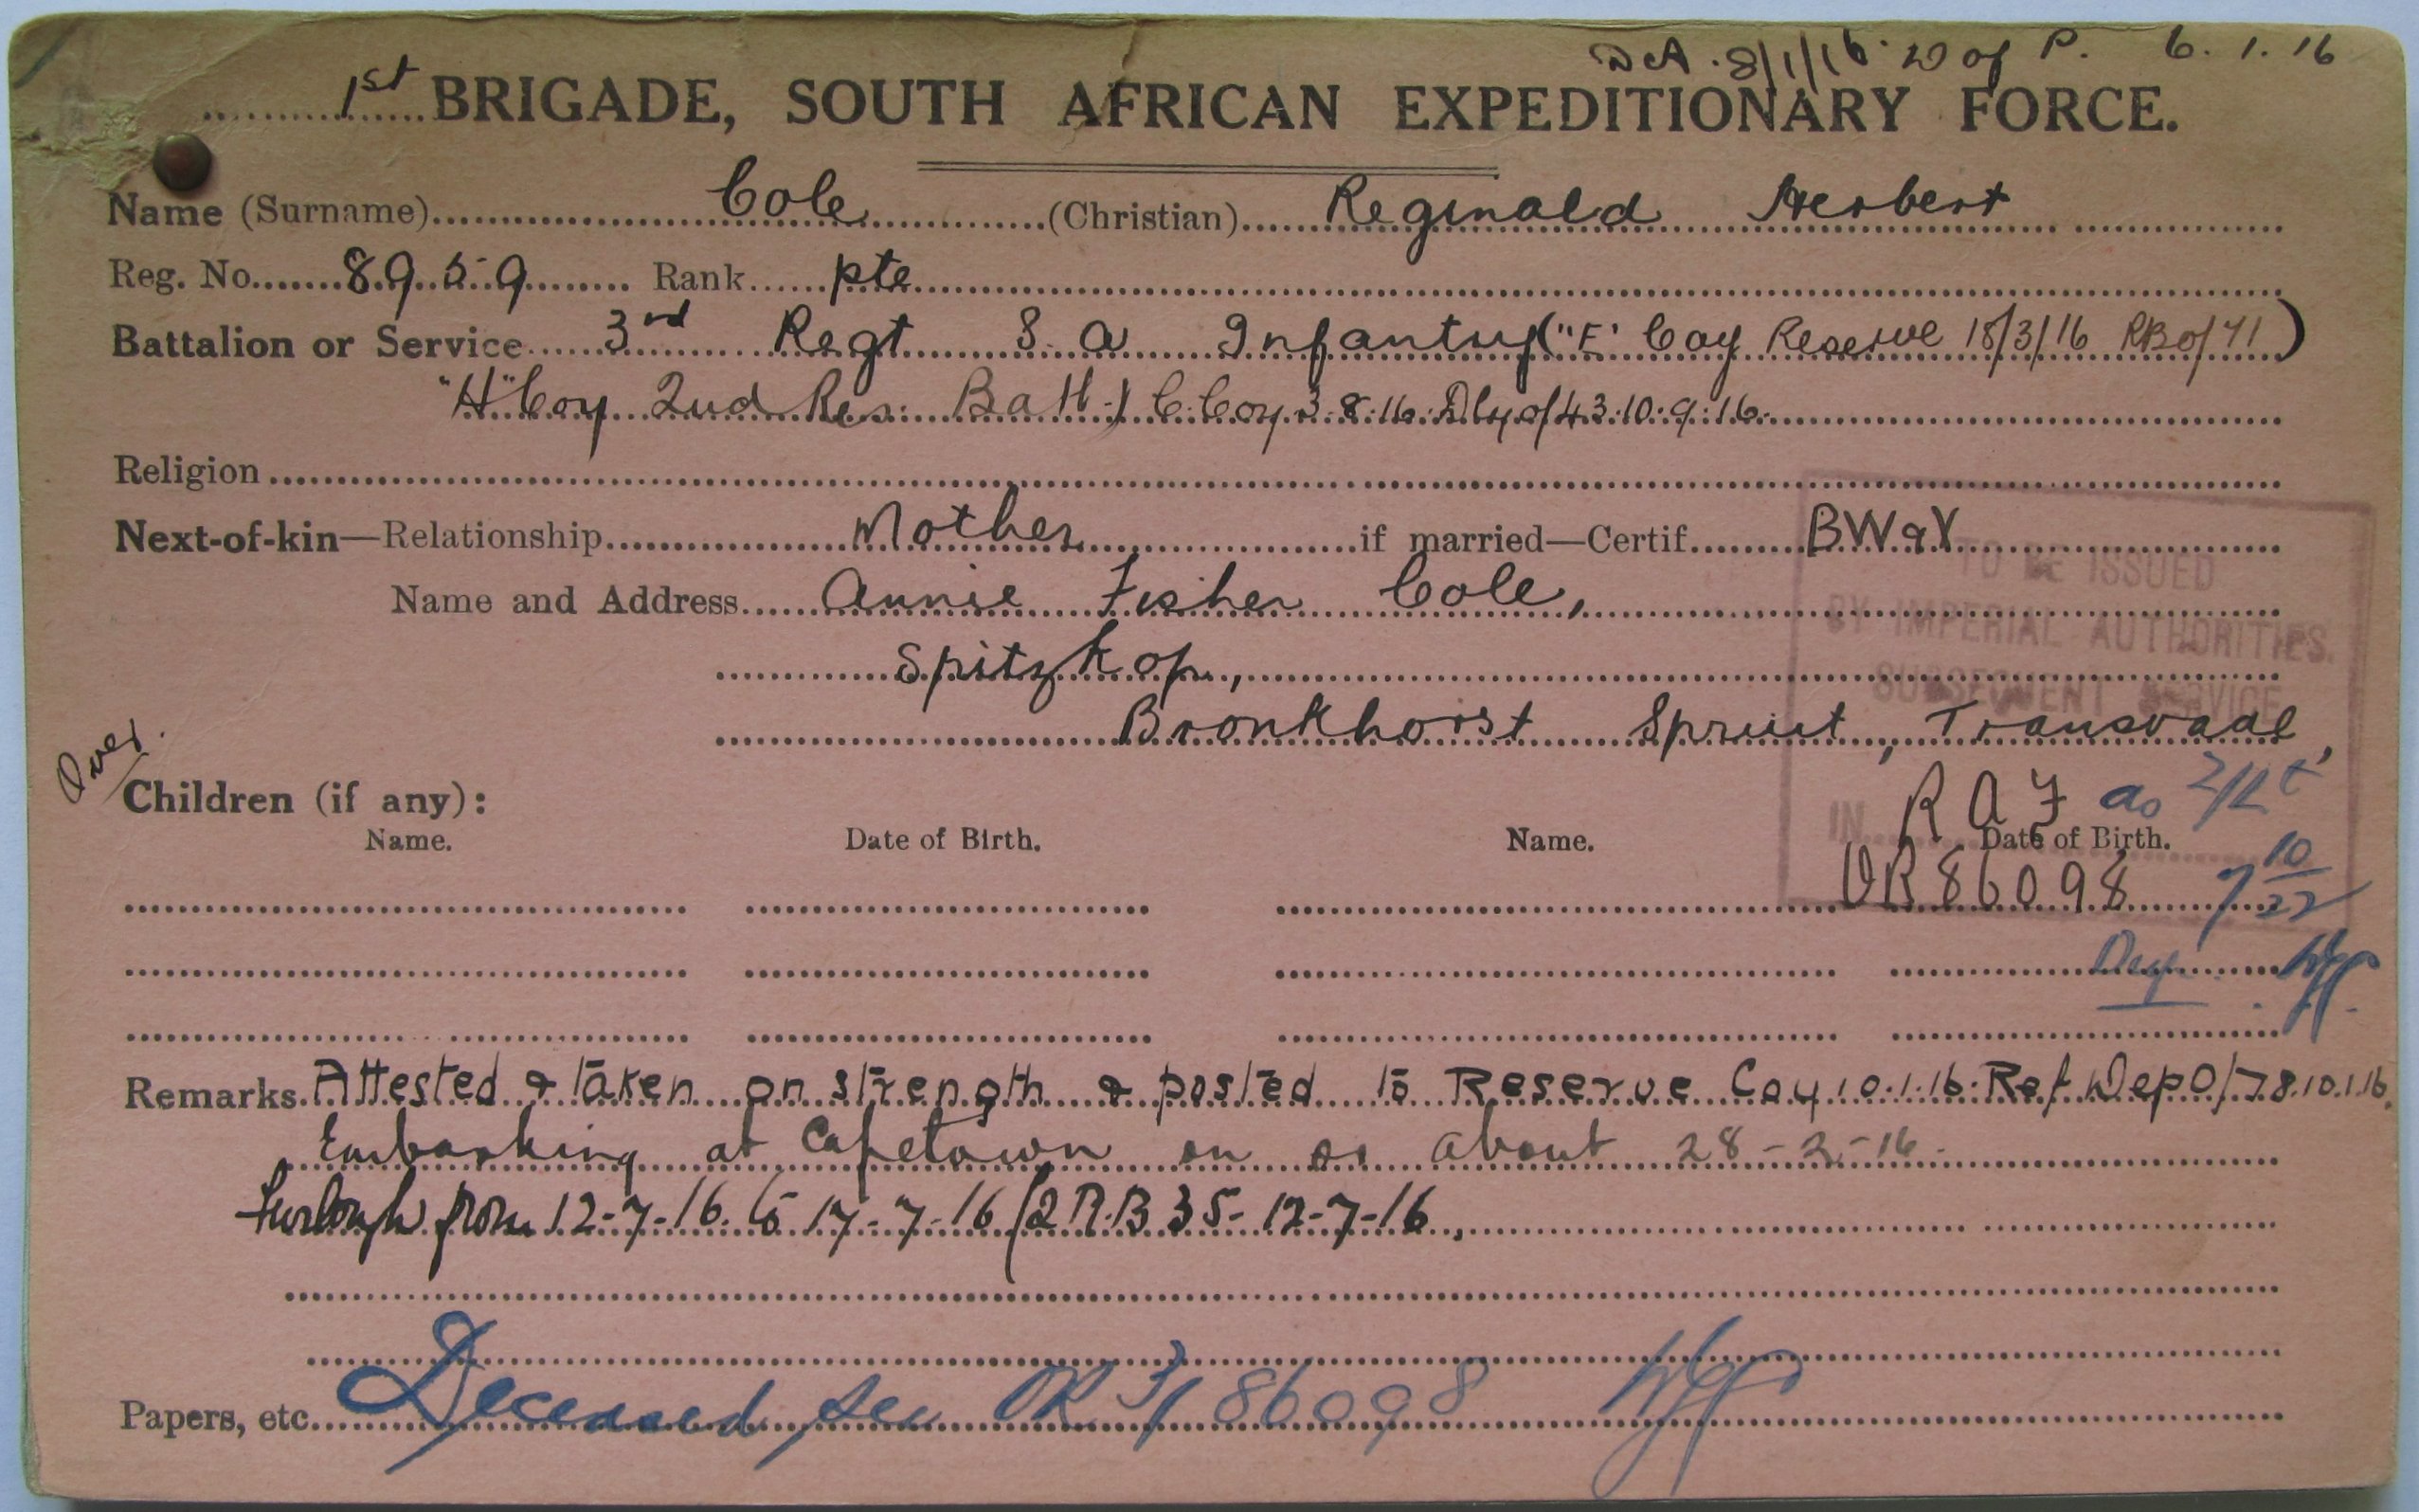 D of A. 8/1/16. D of P. 6.1.16
1st BRIGADE, SOUTH AFRICAN EXPEDITIONARY FORCE.
Name (Surname) Cole (Christian) Reginald Herbert
Reg. No. 8959 Rank pte
Battalion or Service 3rd Regt S. A Infantry ("F" Coy Reserve 18/3/16 RBo/41)
"H" Coy 2nd Res: Batt.) C. Coy 3.8.16. Dly o/43.10.9.16.
Religion
Next-of-kin—Relationship Mother if married—Certif. BW&V
TO BE ISSUED
Name and Address Annie Fisher Cole,
BY IMPERIAL AUTHORITIES.
Spitzkop,
SUBSEQUENT SERVICE
Bronkhorst Spruit, Transvaal,
Over.
Children (if any):
IN RAF as 2/Lt
Name. Date of Birth. Name. Date of Birth.
OR 86098 7 10/22
Remarks. Attested & taken on strength & posted to Reserve Coy 10.1.16. Ref. Dep O/78.10.1.16.
Embarking at Capetown on or about 28-2-16.
Furlough from 12-7-16 to 17-7-16 /2 R.B 35- 12-7-16.,
Papers, etc. Deceased see OR 3/86098